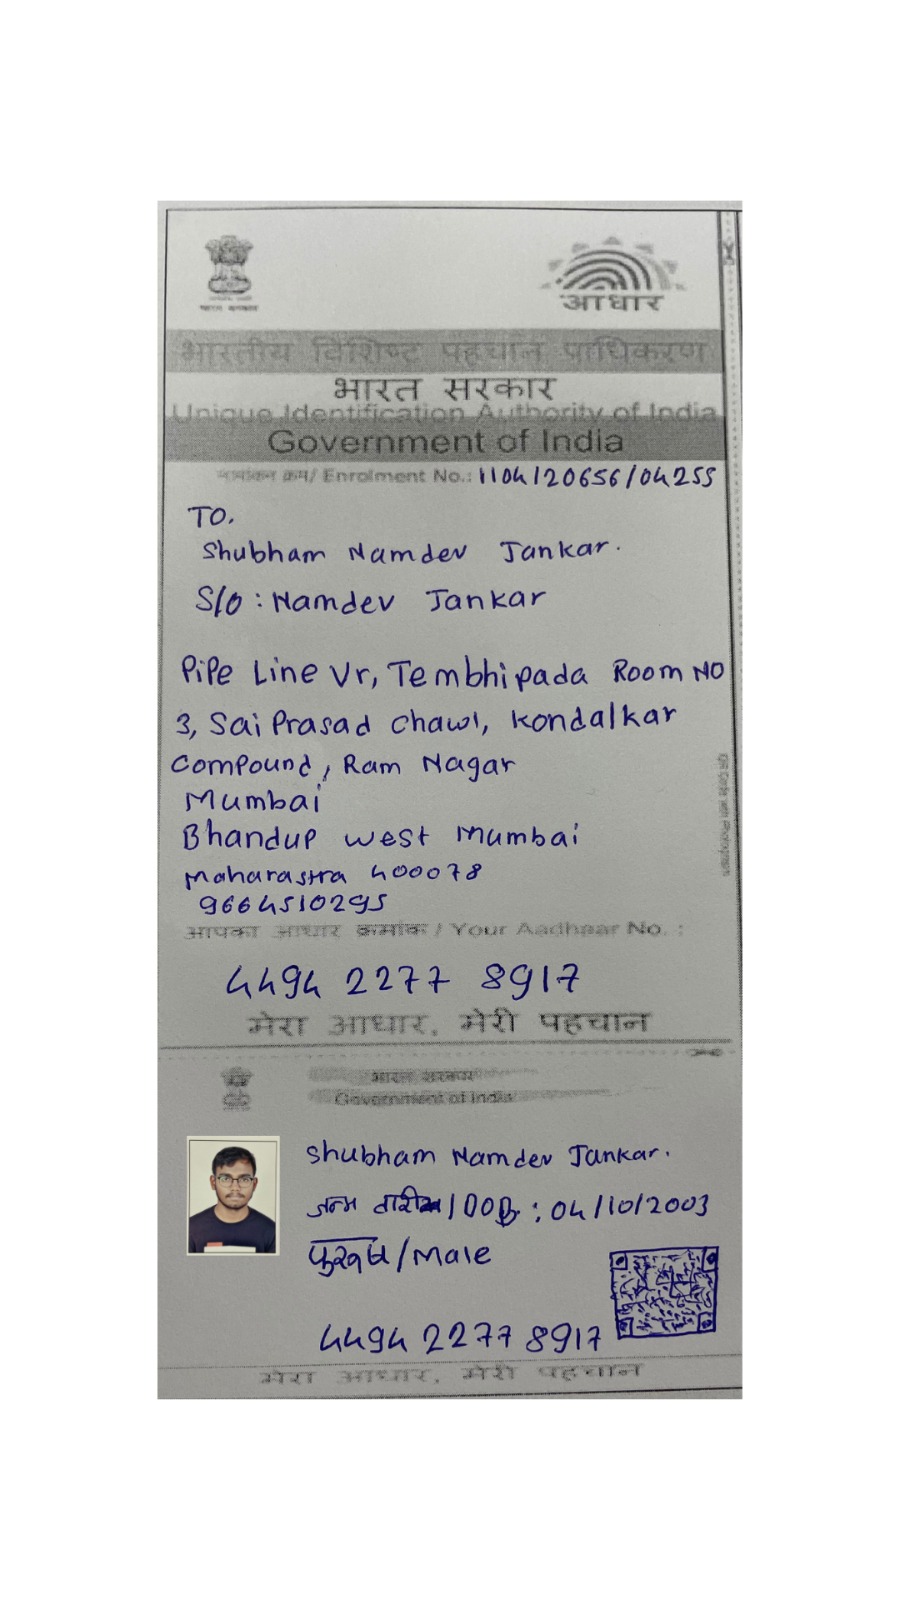 आधार
भारतीय विशिष्ट पहचान प्राधिकरण
भारत सरकार
Unique Identification Authority of India
Government of India
नामांकन क्रम/ Enrolment No.: 1104/20656/04255
TO,
Shubham Namdev Jankar.
S/O : Namdev Jankar
Pipe Line Vr, Tembhipada Room NO
3, Sai Prasad chawl, Kondalkar
Compound, Ram Nagar
Mumbai
Bhandup west Mumbai
Maharastra 400078
9664510295
आपका आधार क्रमांक / Your Aadhaar No. :
4494 2277 8917
मेरा आधार, मेरी पहचान
भारत सरकार
Government of India
Shubham Namdev Jankar.
जन्म तारीख/DOB : 04/10/2003
पुरुष/Male
4494 2277 8917
मेरा आधार, मेरी पहचान